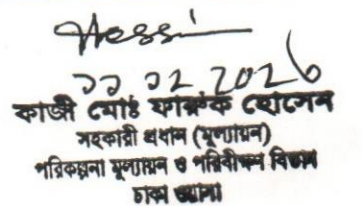 2026
কাজী মোঃ ফারুক হোসেন
সহকারী প্রধান (মূল্যায়ন)
পরিকল্পনা মূল্যায়ন ও পরিবীক্ষণ বিভাগ
ঢাকা ওয়াসা